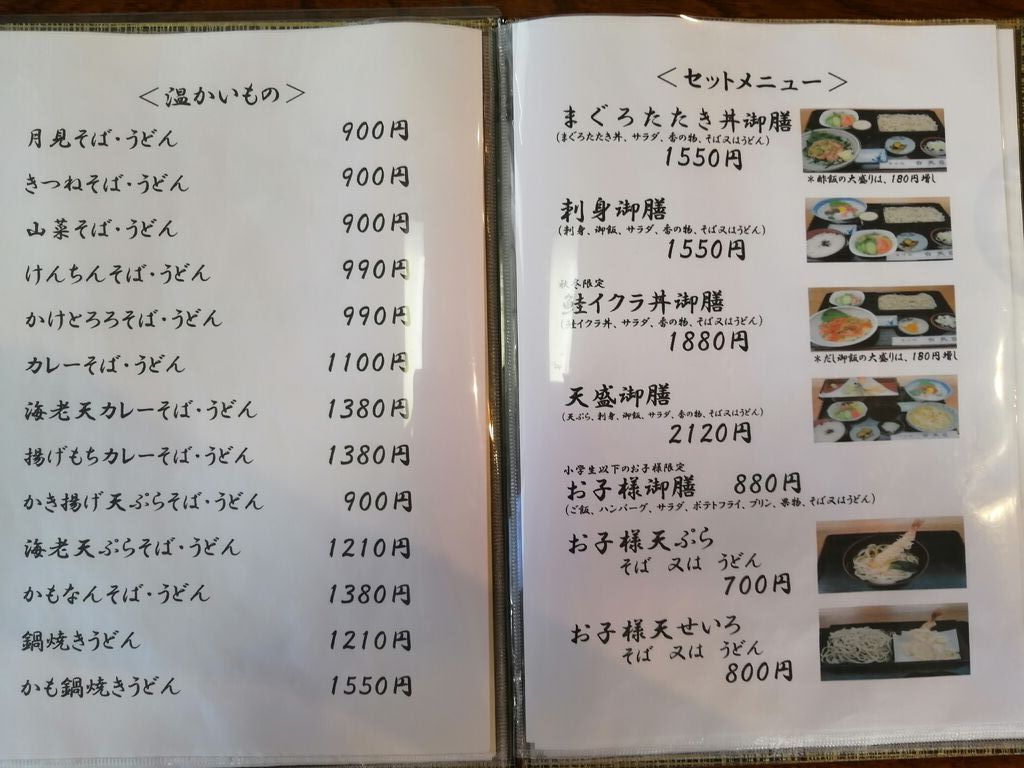 ＜温かいもの＞
月見そば・うどん 900円
きつねそば・うどん 900円
山菜そば・うどん 900円
けんちんそば・うどん 990円
かけとろろそば・うどん 990円
カレーそば・うどん 1100円
海老天カレーそば・うどん 1380円
揚げもちカレーそば・うどん 1380円
かき揚げ天ぷらそば・うどん 900円
海老天ぷらそば・うどん 1210円
かもなんそば・うどん 1380円
鍋焼きうどん 1210円
かも鍋焼きうどん 1550円
＜セットメニュー＞
まぐろたたき丼御膳
(まぐろたたき丼、サラダ、香の物、そば又はうどん)
1550円
＊酢飯の大盛りは、180円増し
刺身御膳
(刺身、御飯、サラダ、香の物、そば又はうどん)
1550円
秋冬限定
鮭イクラ丼御膳
(鮭イクラ丼、サラダ、香の物、そば又はうどん)
1880円
＊だし御飯の大盛りは、180円増し
天盛御膳
(天ぷら、刺身、御飯、サラダ、香の物、そば又はうどん)
2120円
小学生以下のお子様限定
お子様御膳 880円
(ご飯、ハンバーグ、サラダ、ポテトフライ、プリン、果物、そば又はうどん)
お子様天ぷら
そば 又は うどん
700円
お子様天せいろ
そば 又は うどん
800円